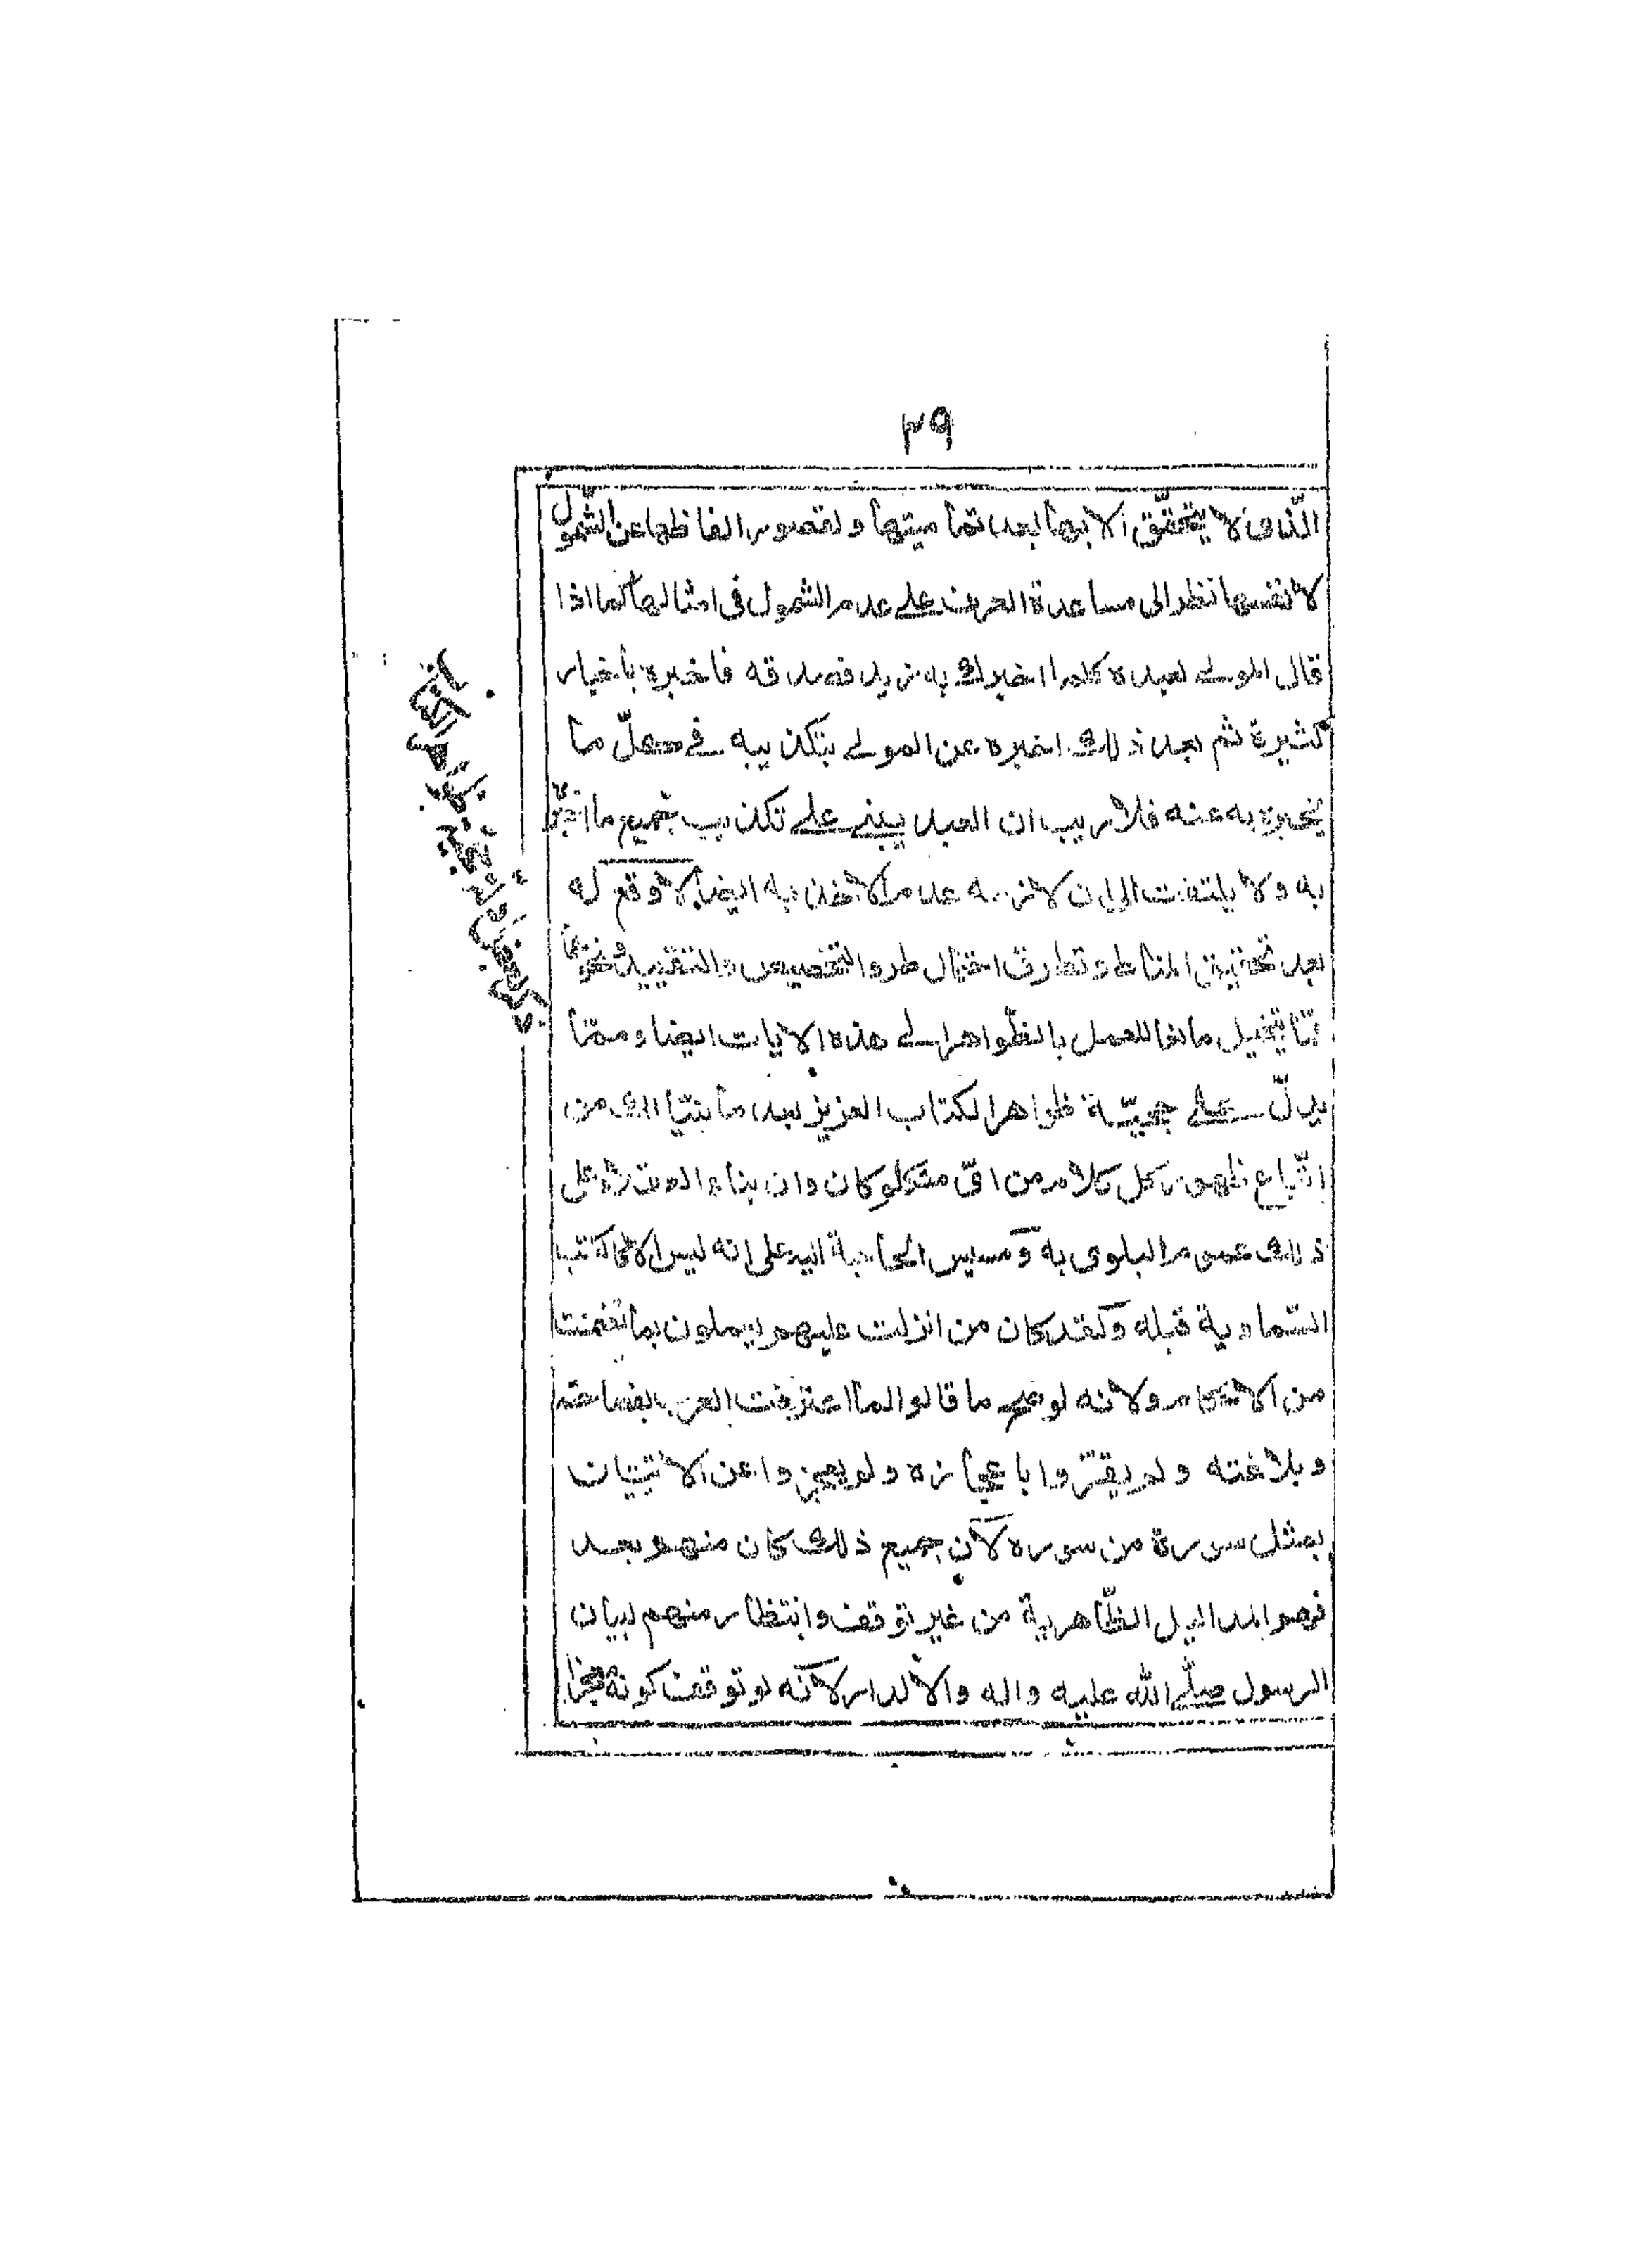 ٣٩
الذى لا يتحقّق الا بها بعد تماميتها ولقصور الفاظها عن الشمول
لانفسها نظرا الى مساعدة العرف على عدم الشمول فى امثالها كما اذا
قال المولى لعبده كلما اخبرك به زيد فصدقه فاخبره باخبار
كثيرة ثم بعد ذلك اخبره عن المولى بتكذيبه فى جعلّ ما
يخبره به عنه فلا ريب ان العبد يبنى على تكذيب جميع ما اخبر
به ولا يلتفت الى ان لازمه عدم الاخذ به ايضا لا وقع له
بعد تحقيق المناط وتطرق احتمال طرو التخصيص والتقييد ونحوهما
مما يتخيل مانعا للعمل بالظّواهر الى هذه الايات ايضا ومما
يدلّ على حجيّة ظواهر الكتاب العزيز بعد ما بيّنا لك من
اتّباع ظهور كل كلام من اىّ متكلم كان وان بناء العقلاء على
ذلك عموم البلوى به ومسيس الحاجة اليه على انه ليس الا كالكتب
السّماوية قبله ولقد كان من انزلت عليهم يعملون بما تضمنت
من الاحكام ولانه لو صح ما قالوا لما اعترفت العرب بفصاحته
وبلاغته ولم يقرّوا باعجازه ولم يعجزوا عن الاتيان
بمثل سورة من سوره لان جميع ذلك كان منهم بعد
فهم المداليل الظّاهرية من غير توقف وانتظار منهم لبيان
الرسول صلّى الله عليه واله والا لدار لانّه لو توقف كونه معجزا